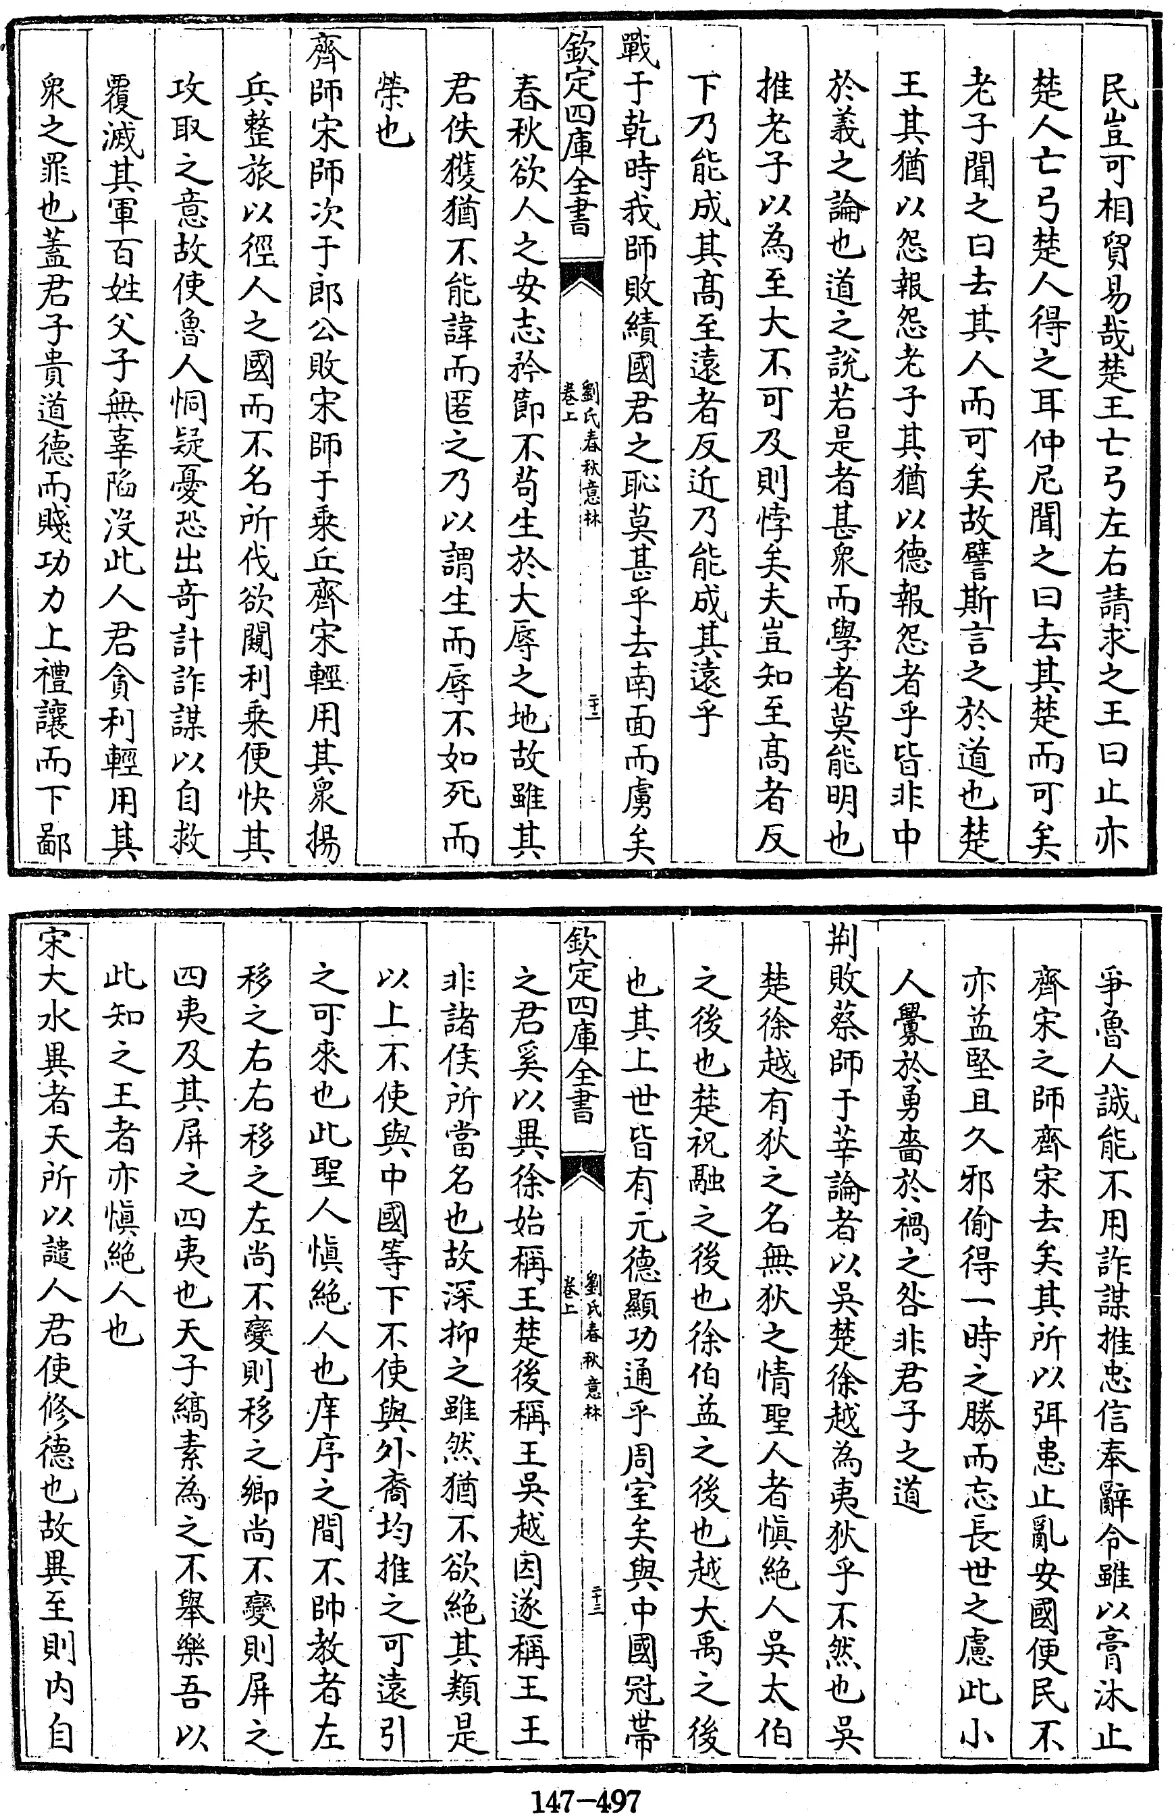 民豈可相貿易哉楚王亡弓左右請求之王曰止亦
楚人亡弓楚人得之耳仲尼聞之曰去其楚而可矣
老子聞之曰去其人而可矣故譬斯言之於道也楚
王其猶以怨報怨老子其猶以德報怨者乎皆非中
於義之論也道之說若是者甚衆而學者莫能明也
推老子以為至大不可及則悖矣夫豈知至髙者反
下乃能成其髙至遠者反近乃能成其遠乎
戰于乾時我師敗績國君之恥莫甚乎去南面而虜矣
欽定四庫全書
劉氏春秋意林
卷上
二十二
春秋欲人之安志矜節不茍生於大辱之地故雖其
君佚獲猶不能諱而匿之乃以謂生而辱不如死而
榮也
齊師宋師次于郎公敗宋師于乗丘齊宋輕用其衆揚
兵整旅以徑人之國而不名所伐欲闚利乗便快其
攻取之意故使魯人恫疑憂恐出竒計詐謀以自救
覆滅其軍百姓父子無辜陷没此人君貪利輕用其
衆之罪也葢君子貴道德而賤功力上禮讓而下鄙
爭魯人誠能不用詐謀推忠信奉辭令雖以膏沐止
齊宋之師齊宋去矣其所以弭患止亂安國便民不
亦益堅且久邪偷得一時之勝而忘長世之慮此小
人釁於勇嗇於禍之咎非君子之道
荆敗蔡師于莘論者以吳楚徐越為夷狄乎不然也吳
楚徐越有狄之名無狄之情聖人者慎絶人吳太伯
之後也楚祝融之後也徐伯益之後也越大禹之後
也其上世皆有元德顯功通乎周室矣與中國冠帶
欽定四庫全書
劉氏春秋意林
卷上
二十三
之君奚以異徐始稱王楚後稱王吳越因遂稱王王
非諸侯所當名也故深抑之雖然猶不欲絶其類是
以上不使與中國等下不使與外裔均推之可逺引
之可來也此聖人慎絶人也庠序之間不帥教者左
移之右右移之左尚不變則移之鄉尚不變則屏之
四夷及其屏之四夷也天子縞素為之不舉樂吾以
此知之王者亦慎絶人也
宋大水異者天所以譴人君使修德也故異至則内自
147-497